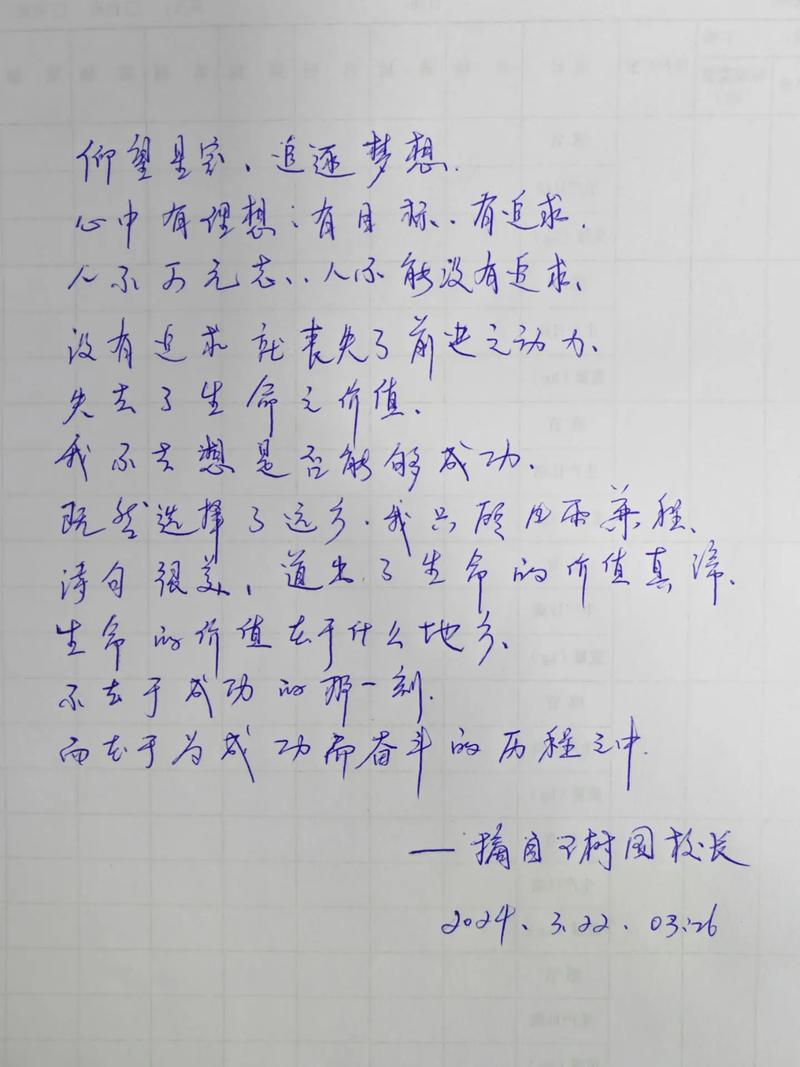 仰望星空、追逐梦想.
心中有理想；有目标、有追求.
人不可无志、人不能没有追求、
没有追求就丧失了前进之动力、
失去了生命之价值、
我不去想是否能够成功.
既然选择了远方.我只顾风雨兼程、
诗句很美、道出了生命的价值真谛、
生命的价值在于什么地方、
不在于成功的那一刻.
而在于为成功而奋斗的历程之中.
——摘自王树国校长
2024、3.22、03:26